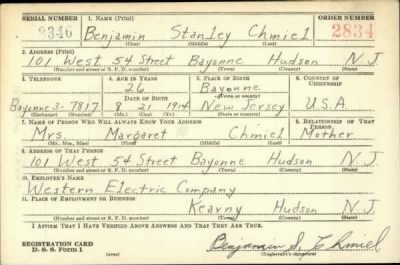 SERIAL NUMBER 1. NAME (Print) ORDER NUMBER
2346 Benjamin Stanley Chmiel 2834
2. ADDRESS (Print)
101 West 54 Street Bayonne Hudson N J
(Number and street or R. F. D. number) (Town) (County) (State)
3. TELEPHONE 4. AGE IN YEARS 5. PLACE OF BIRTH 6. COUNTRY OF CITIZENSHIP
26 Bayonne
DATE OF BIRTH (Town or county)
Bayonne 3-7817 8 21 1914 New Jersey U.S.A
(Exchange) (Number) (Mo.) (Day) (Yr.) (State or country)
7. NAME OF PERSON WHO WILL ALWAYS KNOW YOUR ADDRESS 8. RELATIONSHIP OF THAT PERSON
Mrs. Margaret Chmiel Mother
(Mr., Mrs., Miss) (First) (Middle) (Last)
9. ADDRESS OF THAT PERSON
101 West 54 Street Bayonne Hudson N J
(Number and street or R. F. D. number) (Town) (County) (State)
10. EMPLOYER'S NAME
Western Electric Company
11. PLACE OF EMPLOYMENT OR BUSINESS
Kearny Hudson N J
(Number and street or R. F. D. number) (Town) (County) (State)
I AFFIRM THAT I HAVE VERIFIED ABOVE ANSWERS AND THAT THEY ARE TRUE.
REGISTRATION CARD
D. S. S. Form 1 (over) Benjamin S. Chmiel
(Registrant's signature)